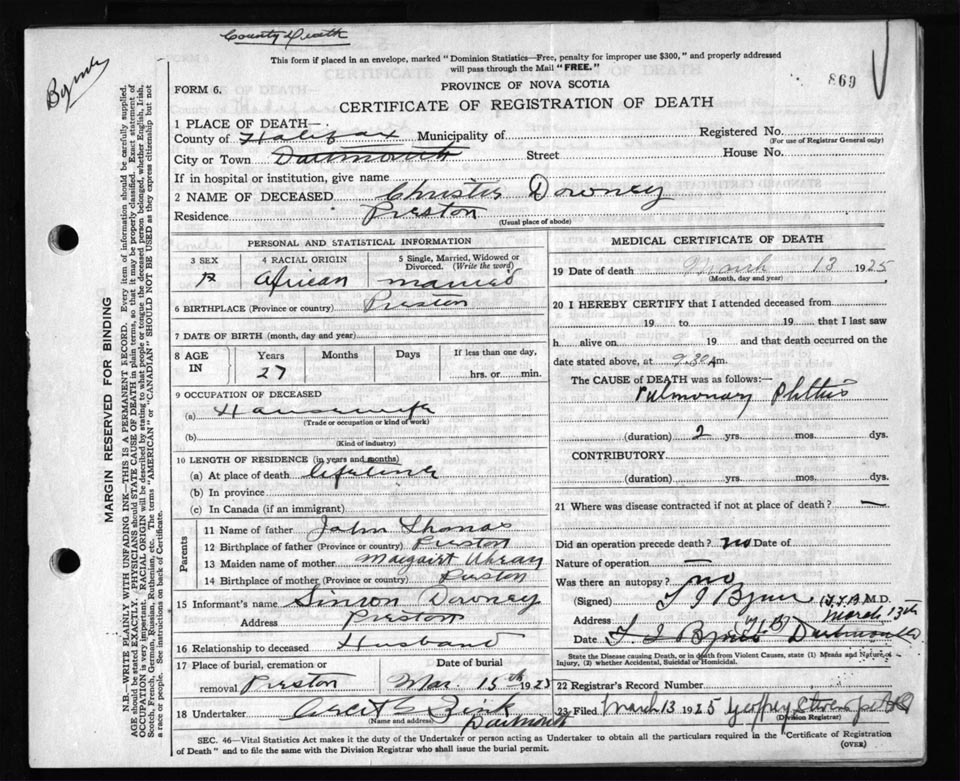 County Death
This form if placed in an envelope, marked "Dominion Statistics—Free, penalty for improper use $300," and properly addressed
will pass through the Mail "FREE."
869
Byrne
FORM 6.
PROVINCE OF NOVA SCOTIA
CERTIFICATE OF REGISTRATION OF DEATH
1 PLACE OF DEATH—
County of Halifax Municipality of
Registered No.
(For use of Registrar General only)
City or Town Dartmouth Street House No.
If in hospital or institution, give name
2 NAME OF DECEASED Christie Downey
Residence Preston
(Usual place of abode)
PERSONAL AND STATISTICAL INFORMATION
3 SEX
4 RACIAL ORIGIN African
5 Single, Married, Widowed or Divorced. (Write the word) married
6 BIRTHPLACE (Province or country) Preston
7 DATE OF BIRTH (month, day and year)
8 AGE IN Years Months Days If less than one day,
27 hrs. or min.
9 OCCUPATION OF DECEASED
(a) Housewife
(Trade or occupation or kind of work)
(b)
(Kind of industry)
10 LENGTH OF RESIDENCE (in years and months)
(a) At place of death lifetime
(b) In province
(c) In Canada (if an immigrant)
Parents
11 Name of father John Thomas
12 Birthplace of father (Province or country) Preston
13 Maiden name of mother Margairt
14 Birthplace of mother (Province or country) Preston
15 Informant's name Simson Downey
Address Preston
16 Relationship to deceased Husband
17 Place of burial, cremation or removal Preston
Date of burial Mar. 15th 1925
18 Undertaker
(Name and address) Dartmouth
MEDICAL CERTIFICATE OF DEATH
19 Date of death March 13 1925
(Month, day and year)
20 I HEREBY CERTIFY that I attended deceased from
19 to 19 that I last saw
h alive on 19 and that death occurred on the
date stated above, at 9.30 A m.
The CAUSE OF DEATH was as follows:
Pulmonary Phthisis
(duration) 2 yrs. mos. dys.
CONTRIBUTORY
(duration) yrs. mos. dys.
21 Where was disease contracted if not at place of death? —
Did an operation precede death? no Date of
Nature of operation —
Was there an autopsy? no
(Signed) T I Byrne M.D.
Address March 13th
Date T I Byrne Dartmouth
State the Disease causing Death, or in death from Violent Causes, state (1) Means and Nature of
Injury, (2) whether Accidental, Suicidal or Homicidal.
22 Registrar's Record Number
23 Filed March 13 1925 Geoffrey Stevens
(Division Registrar)
SEC. 46—Vital Statistics Act makes it the duty of the Undertaker or person acting as Undertaker to obtain all the particulars required in the "Certificate of Registration
of Death" and to file the same with the Division Registrar who shall issue the burial permit.
(OVER)
MARGIN RESERVED FOR BINDING
N.B.—WRITE PLAINLY WITH UNFADING INK—THIS IS A PERMANENT RECORD. Every item of information should be carefully supplied.
AGE should be stated EXACTLY. PHYSICIANS should STATE CAUSE OF DEATH in plain terms, so that it may be properly classified. Exact statement of
OCCUPATION is very important. RACIAL ORIGIN will be described by stating what people or tongue the deceased person belonged, whether English, Irish,
Scotch, French, German, Russian, Ruthenian, etc. The terms "AMERICAN" or "CANADIAN" SHOULD NOT BE USED as they express citizenship but not
a race or people. See instructions on back of Certificate.